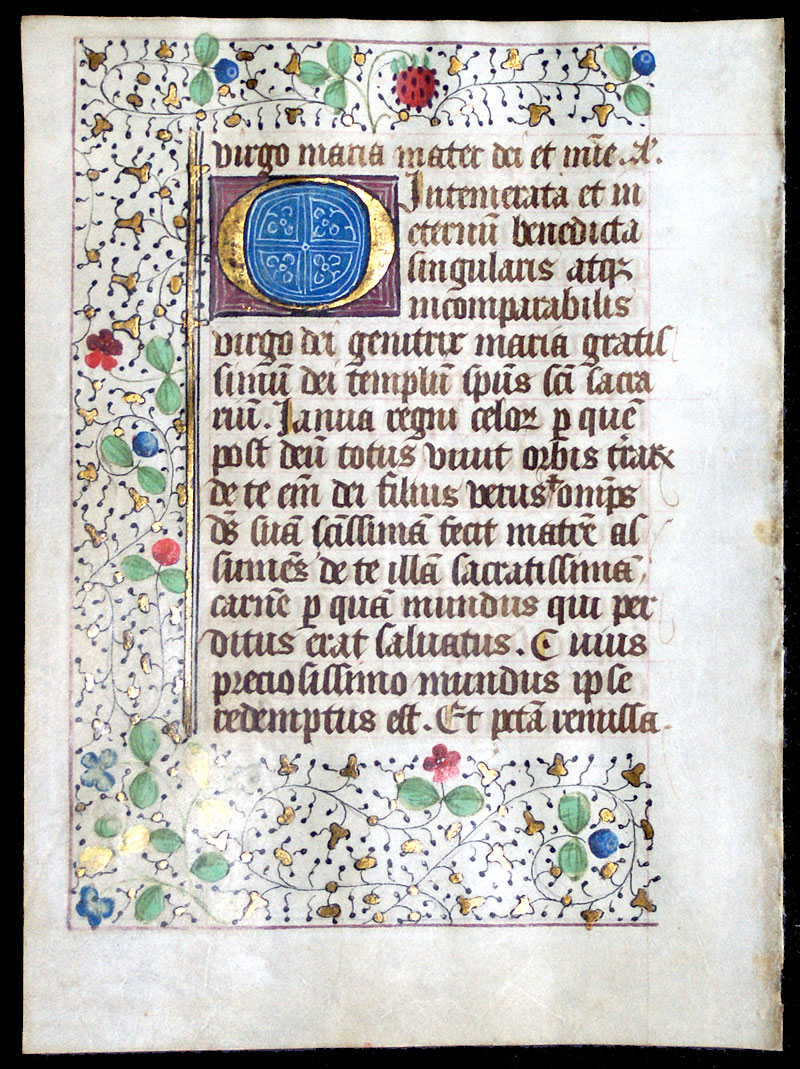 virgo maria mater dei et mīe. Al'.
O Intemerata et in
eternū benedicta
singularis atqꝫ
incomparabilis
virgo dei genitrix maria gratis
simū dei templū spūs scī sacra
riū. Ianua regni celoꝝ p quē
post deū totus viuit orbis t'raꝝ
de te em̄ dei filius verus ⁊ omīps
d's suā scīssimā fecit matrē as
sumēs de te illā sacratissimā
carnē p quā mundus qui per
ditus erat saluatus. Cuius
preciosissimo mundus ipse
redemptus est. Et pctā remissa.